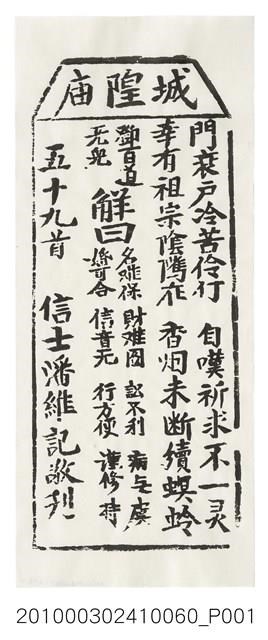 城隍庙
門衰戶冷苦伶仃 自嘆祈求不一灵
幸有祖宗陰隲在 香烟未断續螟蛉
解曰 名难保 財难圖 訟不利 病无虞
婚可合 信音无 行方便 謹修持
五十九首 信士潘維記敬刋
201000302410060_P001